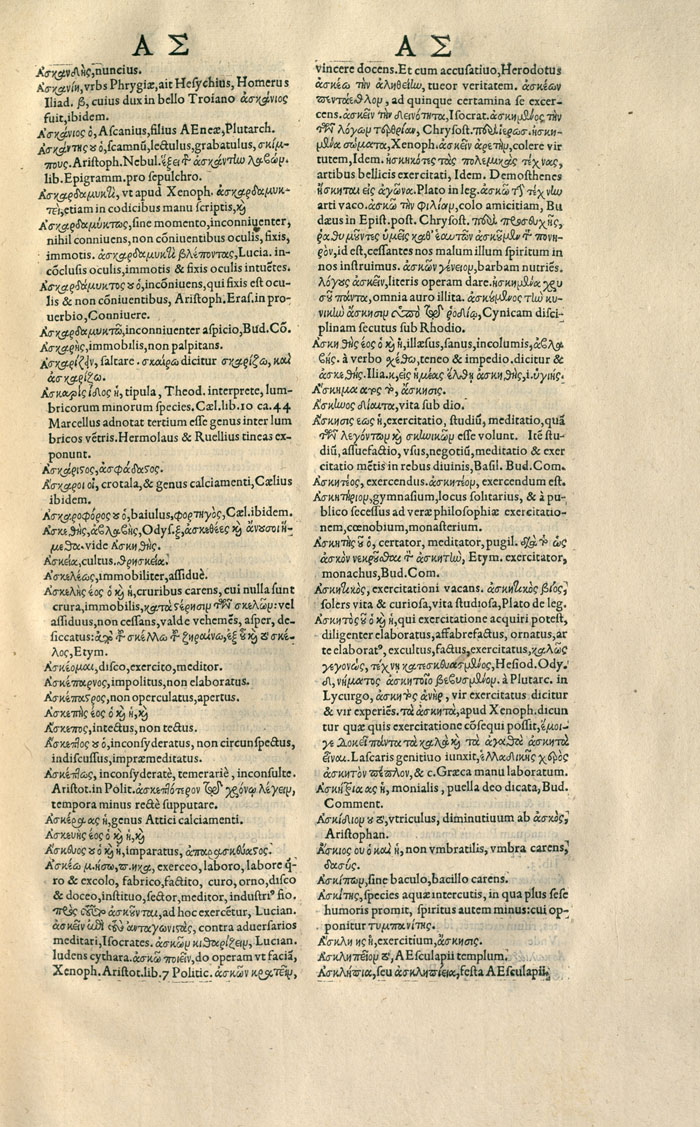 Α Σ
Ἀσκάνδης, nuncius.
Ἀσκανίη, vrbs Phrygiæ, ait Hesychius, Homerus
Iliad. β, cuius dux in bello Troiano ἀσκάνιος
fuit, ibidem.
Ἀσκάνιος ὁ, Ascanius, filius AEneæ, Plutarch.
Ἀσκάντης ου ὁ, scamnũ, lectulus, grabatulus, σκίμ-
πους. Aristoph. Nebul. ἕξει τ̀ ἀσκάντην λαβών.
lib. Epigramm. pro sepulchro.
Ἀσκαρδαμυκτὶ, vt apud Xenoph. ἀσκαρδαμυκ-
τεὶ, etiam in codicibus manu scriptis, καὶ
Ἀσκαρδαμύκτως, sine momento, inconniuenter,
nihil conniuens, non cõniuentibus oculis, fixis,
immotis. ἀσκαρδαμυκτὶ βλέποντας, Lucia. in-
cõclusis oculis, immotis & fixis oculis intuẽtes.
Ἀσκαρδάμυκτος ου ὁ, incõniuens, qui fixis est ocu-
lis & non cõniuentibus, Aristoph. Eras. in pro-
uerbio, Conniuere.
Ἀσκαρδαμυκτῶ, inconniuenter aspicio, Bud. Cõ.
Ἀσκαρὴς, immobilis, non palpitans.
Ἀσκαρίζειν, saltare. σκαίρω dicitur σκαρίζω, καὶ
ἀσκαρίζω.
Ἀσκαρὶς ίδος ἡ, tipula, Theod. interprete, lum-
bricorum minorum species. Cæl. lib. 10 ca. 44
Marcellus adnotat tertium esse genus inter lum
bricos vẽtris. Hermolaus & Ruellius tineas ex-
ponunt.
Ἀσκάριστος, ἀσφάδαστος.
Ἀσκαροι οἱ, crotala, & genus calciamenti, Cælius
ibidem.
Ἀσκαροφόρος ου ὁ, baiulus, φορτηγὸς, Cæl. ibidem.
Ἀσκεθὴς, ἀβλαβὴς, Odys. ξ, ἀσκεθέες καὶ ἄνυσοι ἥ-
μεθα. vide Ἀσκηθής.
Ἀσκεία, cultus. θρησκεία.
Ἀσκελέως, immobiliter, assiduè.
Ἀσκελὴς έος ὁ καὶ ἡ, cruribus carens, cui nulla sunt
crura, immobilis, κατὰ στέρησιν τῶν σκελῶν: vel
assiduus, non cessans, valde vehemẽs, asper, de-
siccatus: ἀπὸ τοῦ σκέλλω τὸ ξηραίνω, ἐξ οὗ καὶ ου σκέ-
λος, Etym.
Ἀσκέομαι, disco, exercito, meditor.
Ἀσκέπαρνος, impolitus, non elaboratus.
Ἀσκέπαστος, non operculatus, apertus.
Ἀσκεπὴς έος ὁ καὶ ἡ, καὶ
Ἀσκεπος, intectus, non tectus.
Ἀσκεπτος ου ὁ, inconsyderatus, non circunspectus,
indiscussus, impræmeditatus.
Ἀσκέπτως, inconsyderatè, temerariè, inconsulte.
Aristot. in Polit. ἀσκεπτότερον τῶν χρόνων λέγειν,
tempora minus rectè supputare.
Ἀσκέρα ας ἡ, genus Attici calciamenti.
Ἀσκευὴς έος ὁ καὶ ἡ, καὶ
Ἀσκευος ου ὁ καὶ ἡ, imparatus, ἀπαρασκεύαστος.
Ἀσκέω μ. ήσω, π. ηκα, exerceo, laboro, labore q̃-
ro & excolo, fabrico, factito, curo, orno, disco
& doceo, instituo, sector, meditor, industri⁹ sio.
πρὸς ἀσκῶνται, ad hoc exercẽtur, Lucian.
ἀσκεῖν ἐπὶ τοὺς ἀνταγωνιστὰς, contra aduersarios
meditari, Isocrates. ἀσκῶν κιθαρίζειν, Lucian.
ludens cythara. ἀσκῶ ποιεῖν, do operam vt faciã,
Xenoph. Aristot. lib. 7 Politic. ἀσκῶν κρατεῖν,
Α Σ
vincere docens. Et cum accusatiuo, Herodotus
ἀσκέω τὴν ἀληθείην, tueor veritatem. ἀσκέων
πένταεθλον, ad quinque certamina se exer-
cens. ἀσκεῖν τὴν δεινότητα, Isocrat. ἀσκημένος τὴν
τῶν λόγων τερθρείαν, Chrysost. ἠσκη-
μένα σώματα, Xenoph. ἀσκεῖν ἀρετὴν, colere vir
tutem, Idem. ἠσκηκότες τὰς πολεμικὰς τέχνας,
artibus bellicis exercitati, Idem. Demosthenes
ἤσκηται εἰς ἀγῶνα. Plato in leg. ἀσκῶ τὴν τέχνην
arti vaco. ἀσκῶ τὴν φιλίαν, colo amicitiam, Bu
dæus in Epist. post. Chrysost. περὶ προσευχῆς,
ῥαθυμοῦντες ὑμεῖς καθ' ἑαυτῶν ἀσκοῦμεν τὸ πονη-
ρὸν, id est, cessantes nos malum illum spiritum in
nos instruimus. ἀσκῶν γένειον, barbam nutriẽs.
λόγους ἀσκεῖν, literis operam dare. ἠσκημένα χρυ
σοῦ πάντα, omnia auro illita. ἀσκούμενος τὴν κυ-
νικὴν ἄσκησιν ῥοδίῳ, Cynicam disci-
plinam secutus sub Rhodio.
Ἀσκηθὴς έος ὁ καὶ ἡ, illæsus, sanus, incolumis, ἀβλα
βής. à verbo σχέθω, teneo & impedio. dicitur &
ἀσκεθής. Ilia. κ, εἰς ἡμέας ἔλθῃ ἀσκηθὴς, i. ὑγιής.
Ἄσκημα ατος τὸ, ἄσκησις.
Ἀσκηνος δίαιτα, vita sub dio.
Ἀσκησις εως ἡ, exercitatio, studiũ, meditatio, quã
τῶν λεγόντων καὶ σκηνικῶν esse volunt. Itẽ stu-
diũ, assuefactio, vsus, negotiũ, meditatio & exer
citatio mẽtis in rebus diuinis, Basil. Bud. Com.
Ἀσκητέος, exercendus. ἀσκητέον, exercendum est.
Ἀσκητήριον, gymnasium, locus solitarius, & à pu-
blico secessus ad veræ philosophiæ exercitatio-
nem, cœnobium, monasterium.
Ἀσκητὴς οῦ ὁ, certator, meditator, pugil. διὰ τὸ ὡς
ἀσκὸν νεκροῦσθαι τὸν ἀσκητὴν, Etym. exercitator,
monachus, Bud. Com.
Ἀσκητικὸς, exercitationi vacans. ἀσκητικὸς βίος,
solers vita & curiosa, vita studiosa, Plato de leg.
Ἀσκητὸς οῦ ὁ καὶ ἡ, qui exercitatione acquiri potest,
diligenter elaboratus, affabrefactus, ornatus, ar
te elaborat⁹, excultus, factus, exercitatus, καλῶς
γεγονὼς, τέχνῃ κατεσκευασμένος, Hesiod. Ody.
δ, νήματος ἀσκητοῖο βεβυσμένον. à Plutarc. in
Lycurgo, ἀσκητὸς ἀνὴρ, vir exercitatus dicitur
& vir experiẽs. τὰ ἀσκητὰ, apud Xenoph. dicun
tur quæ quis exercitatione cõsequi possit, ἔμοι-
γε δοκεῖ πάντα τὰ καλὰ καὶ τὰ ἀγαθὰ ἀσκητὰ
εἶναι. Lascaris genitiuo iunxit, ἑλλαδικῆς χερὸς
ἀσκητὸν πέπλον, & c. Græca manu laboratum.
Ἀσκήτρια ας ἡ, monialis, puella deo dicata, Bud.
Comment.
Ἀσκίδιον ου τὸ, vtriculus, diminutiuum ab ἀσκὸς,
Aristophan.
Ἄσκιος ου ὁ καὶ ἡ, non vmbratilis, vmbra carens,
δασύς.
Ἀσκίπων, sine baculo, bacillo carens.
Ἀσκίτης, species aquæ intercutis, in qua plus sese
humoris promit, spiritus autem minus: cui op-
ponitur τυμπανίτης.
Ἀσκλη ης ἡ, exercitium, ἄσκησις.
Ἀσκληπεῖον ου, AEsculapii templum.
Ἀσκλήπια, seu ἀσκληπίεια, festa AEsculapii,